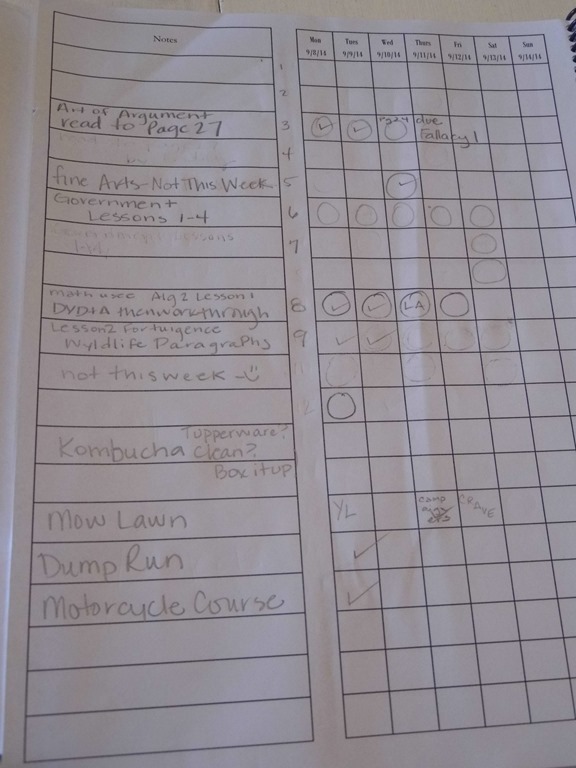 Notes
Mon Tues Wed Thurs Fri Sat Sun
9/8/14 9/9/14 9/10/14 9/11/14 9/12/14 9/13/14 9/14/14
1
2
Art of Argument
read to Page 27 3 due
Fallacy 1
4
fine Arts-Not This Week 5
Government
Lessons 1-4 6
lessons
7
math usee Alg 2 Lesson 1
DVD+A then work through 8 LA
Lesson 2 Fortuigence
Wyldlife Paragraphs 9
not this week
12
Tupperware?
Kombucha Clean?
Box it up
Mow Lawn YL
Dump Run
Motorcycle Course